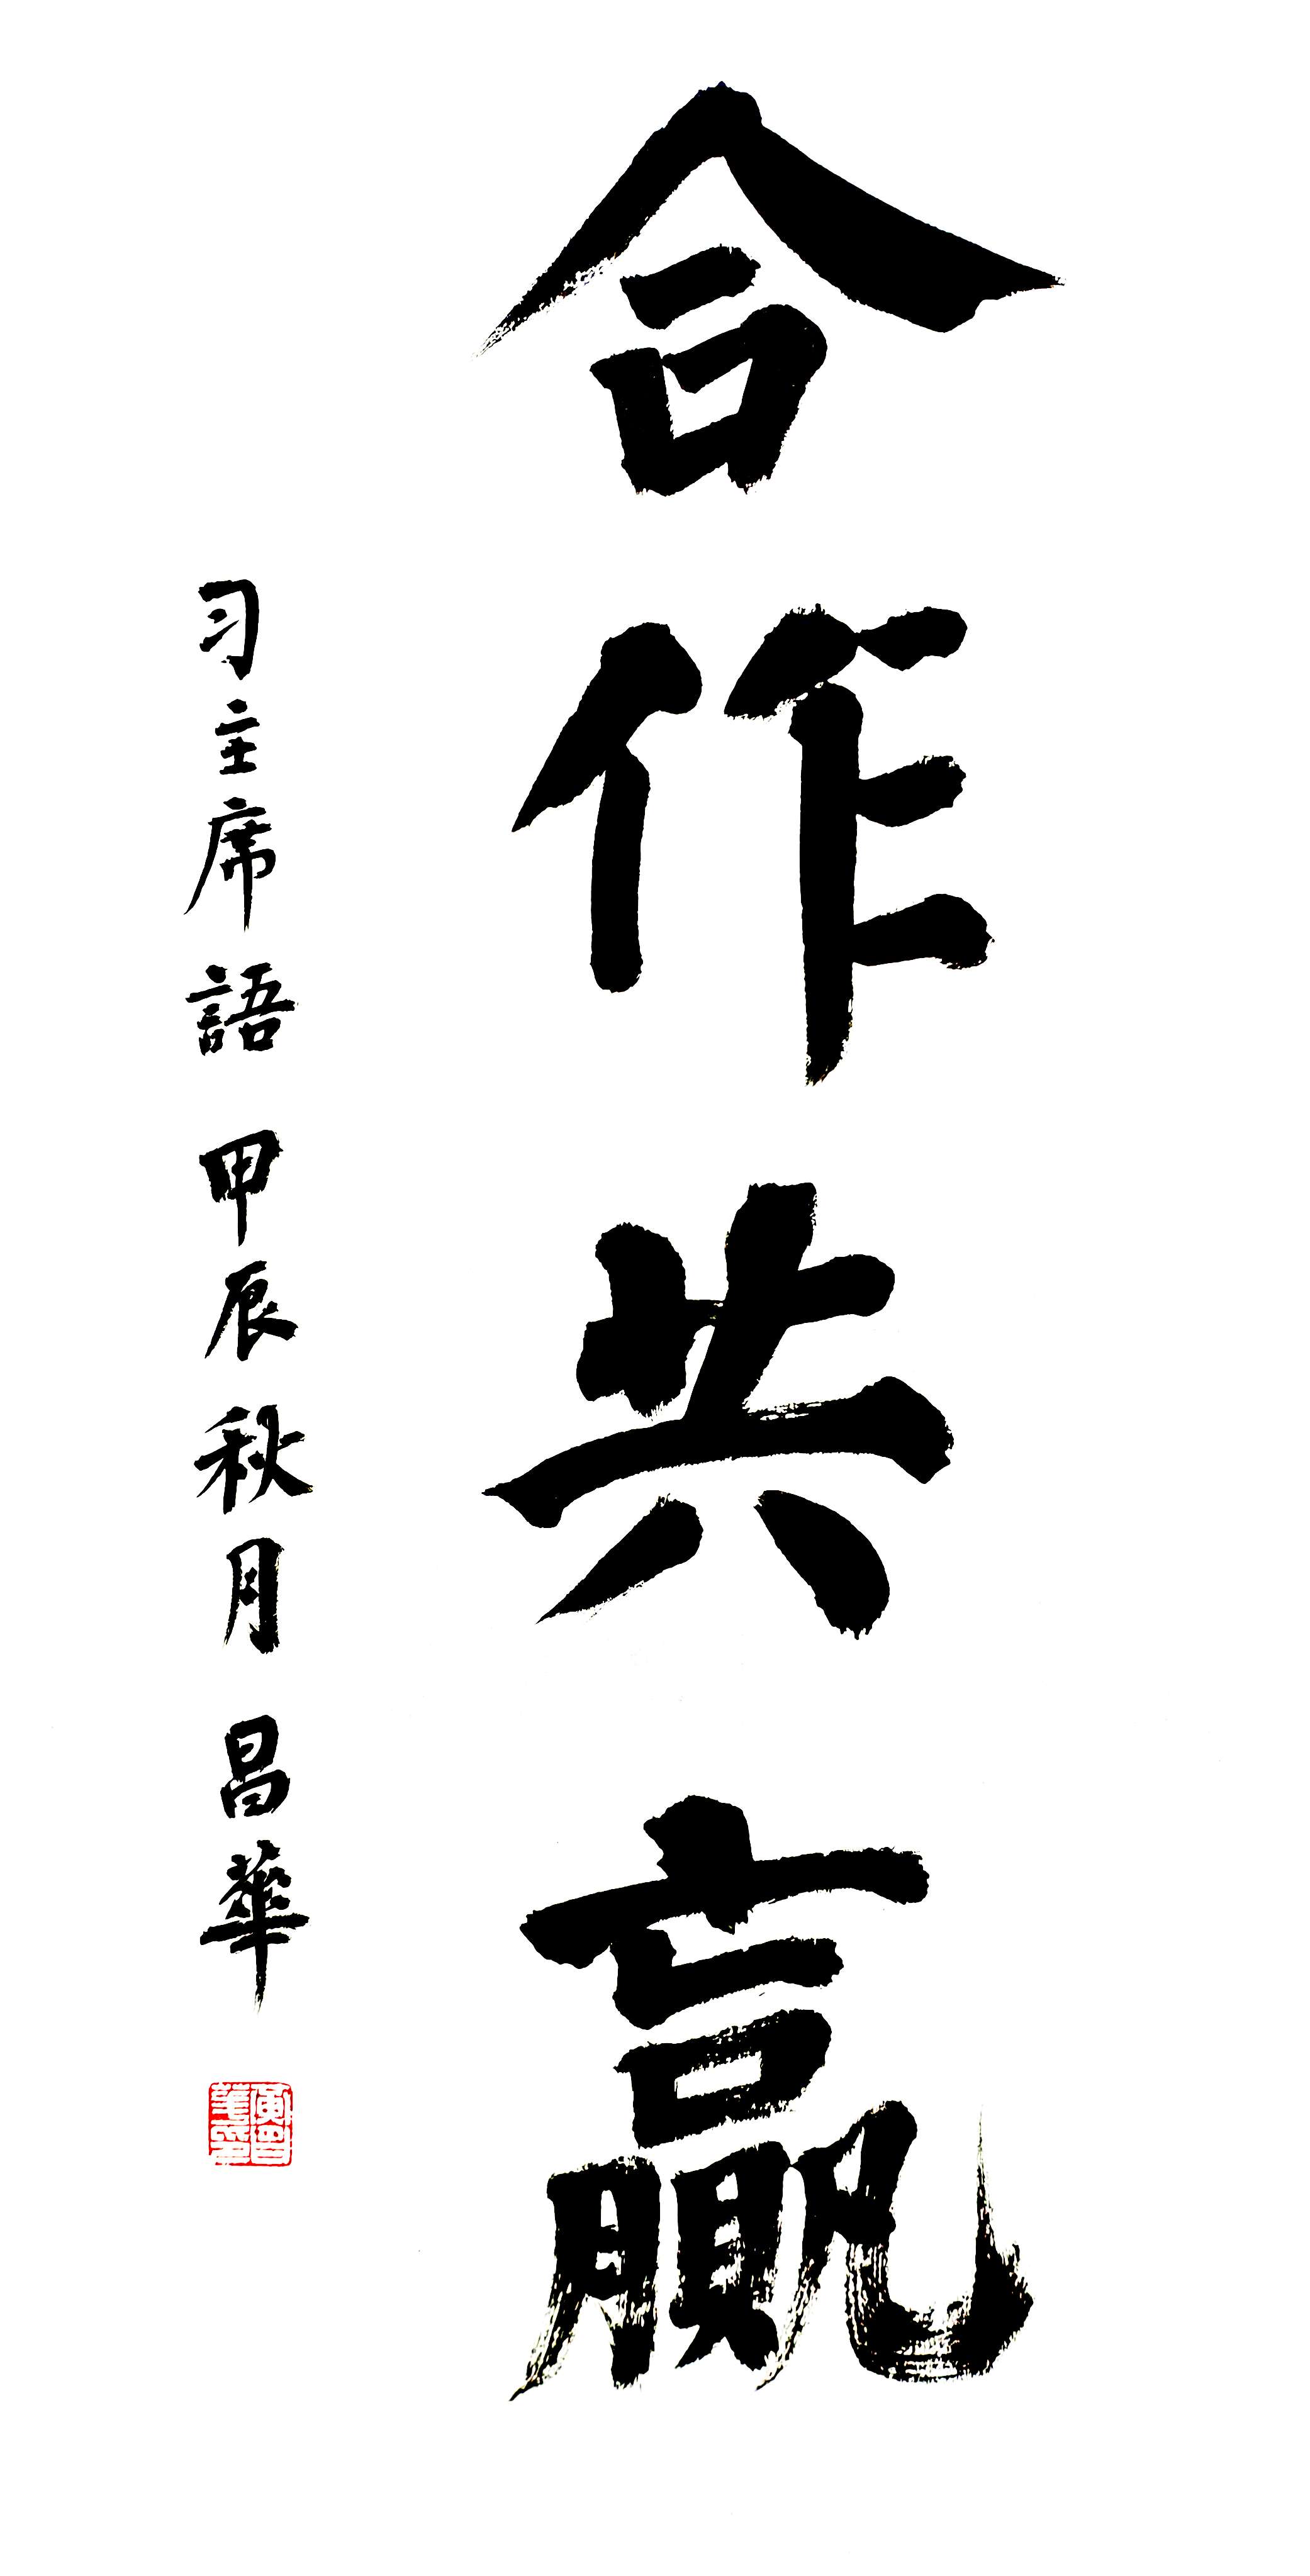 合作共赢
习主席語 甲辰秋月 昌華